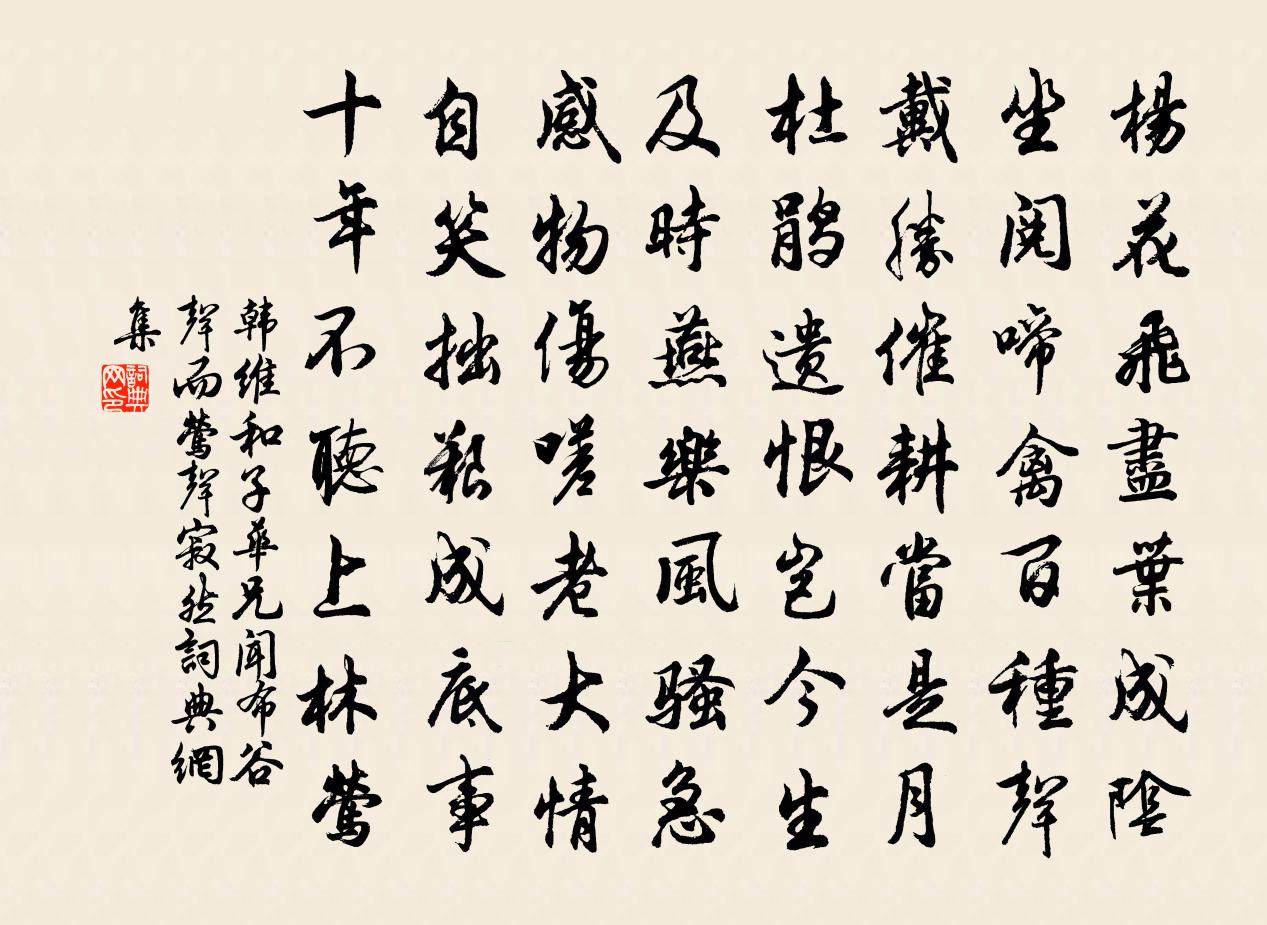 楊花飛盡葉成陰
坐閱啼禽百種聲
戴勝催耕當是月
杜鹃遗恨岂今生
及時燕樂風騷急
感物傷嗟老大情
自笑拙艱成底事
十年不聽上林鶯
韩維和子華兄聞布谷
聲而鶯聲寂然詞典網
集
詞典
网印